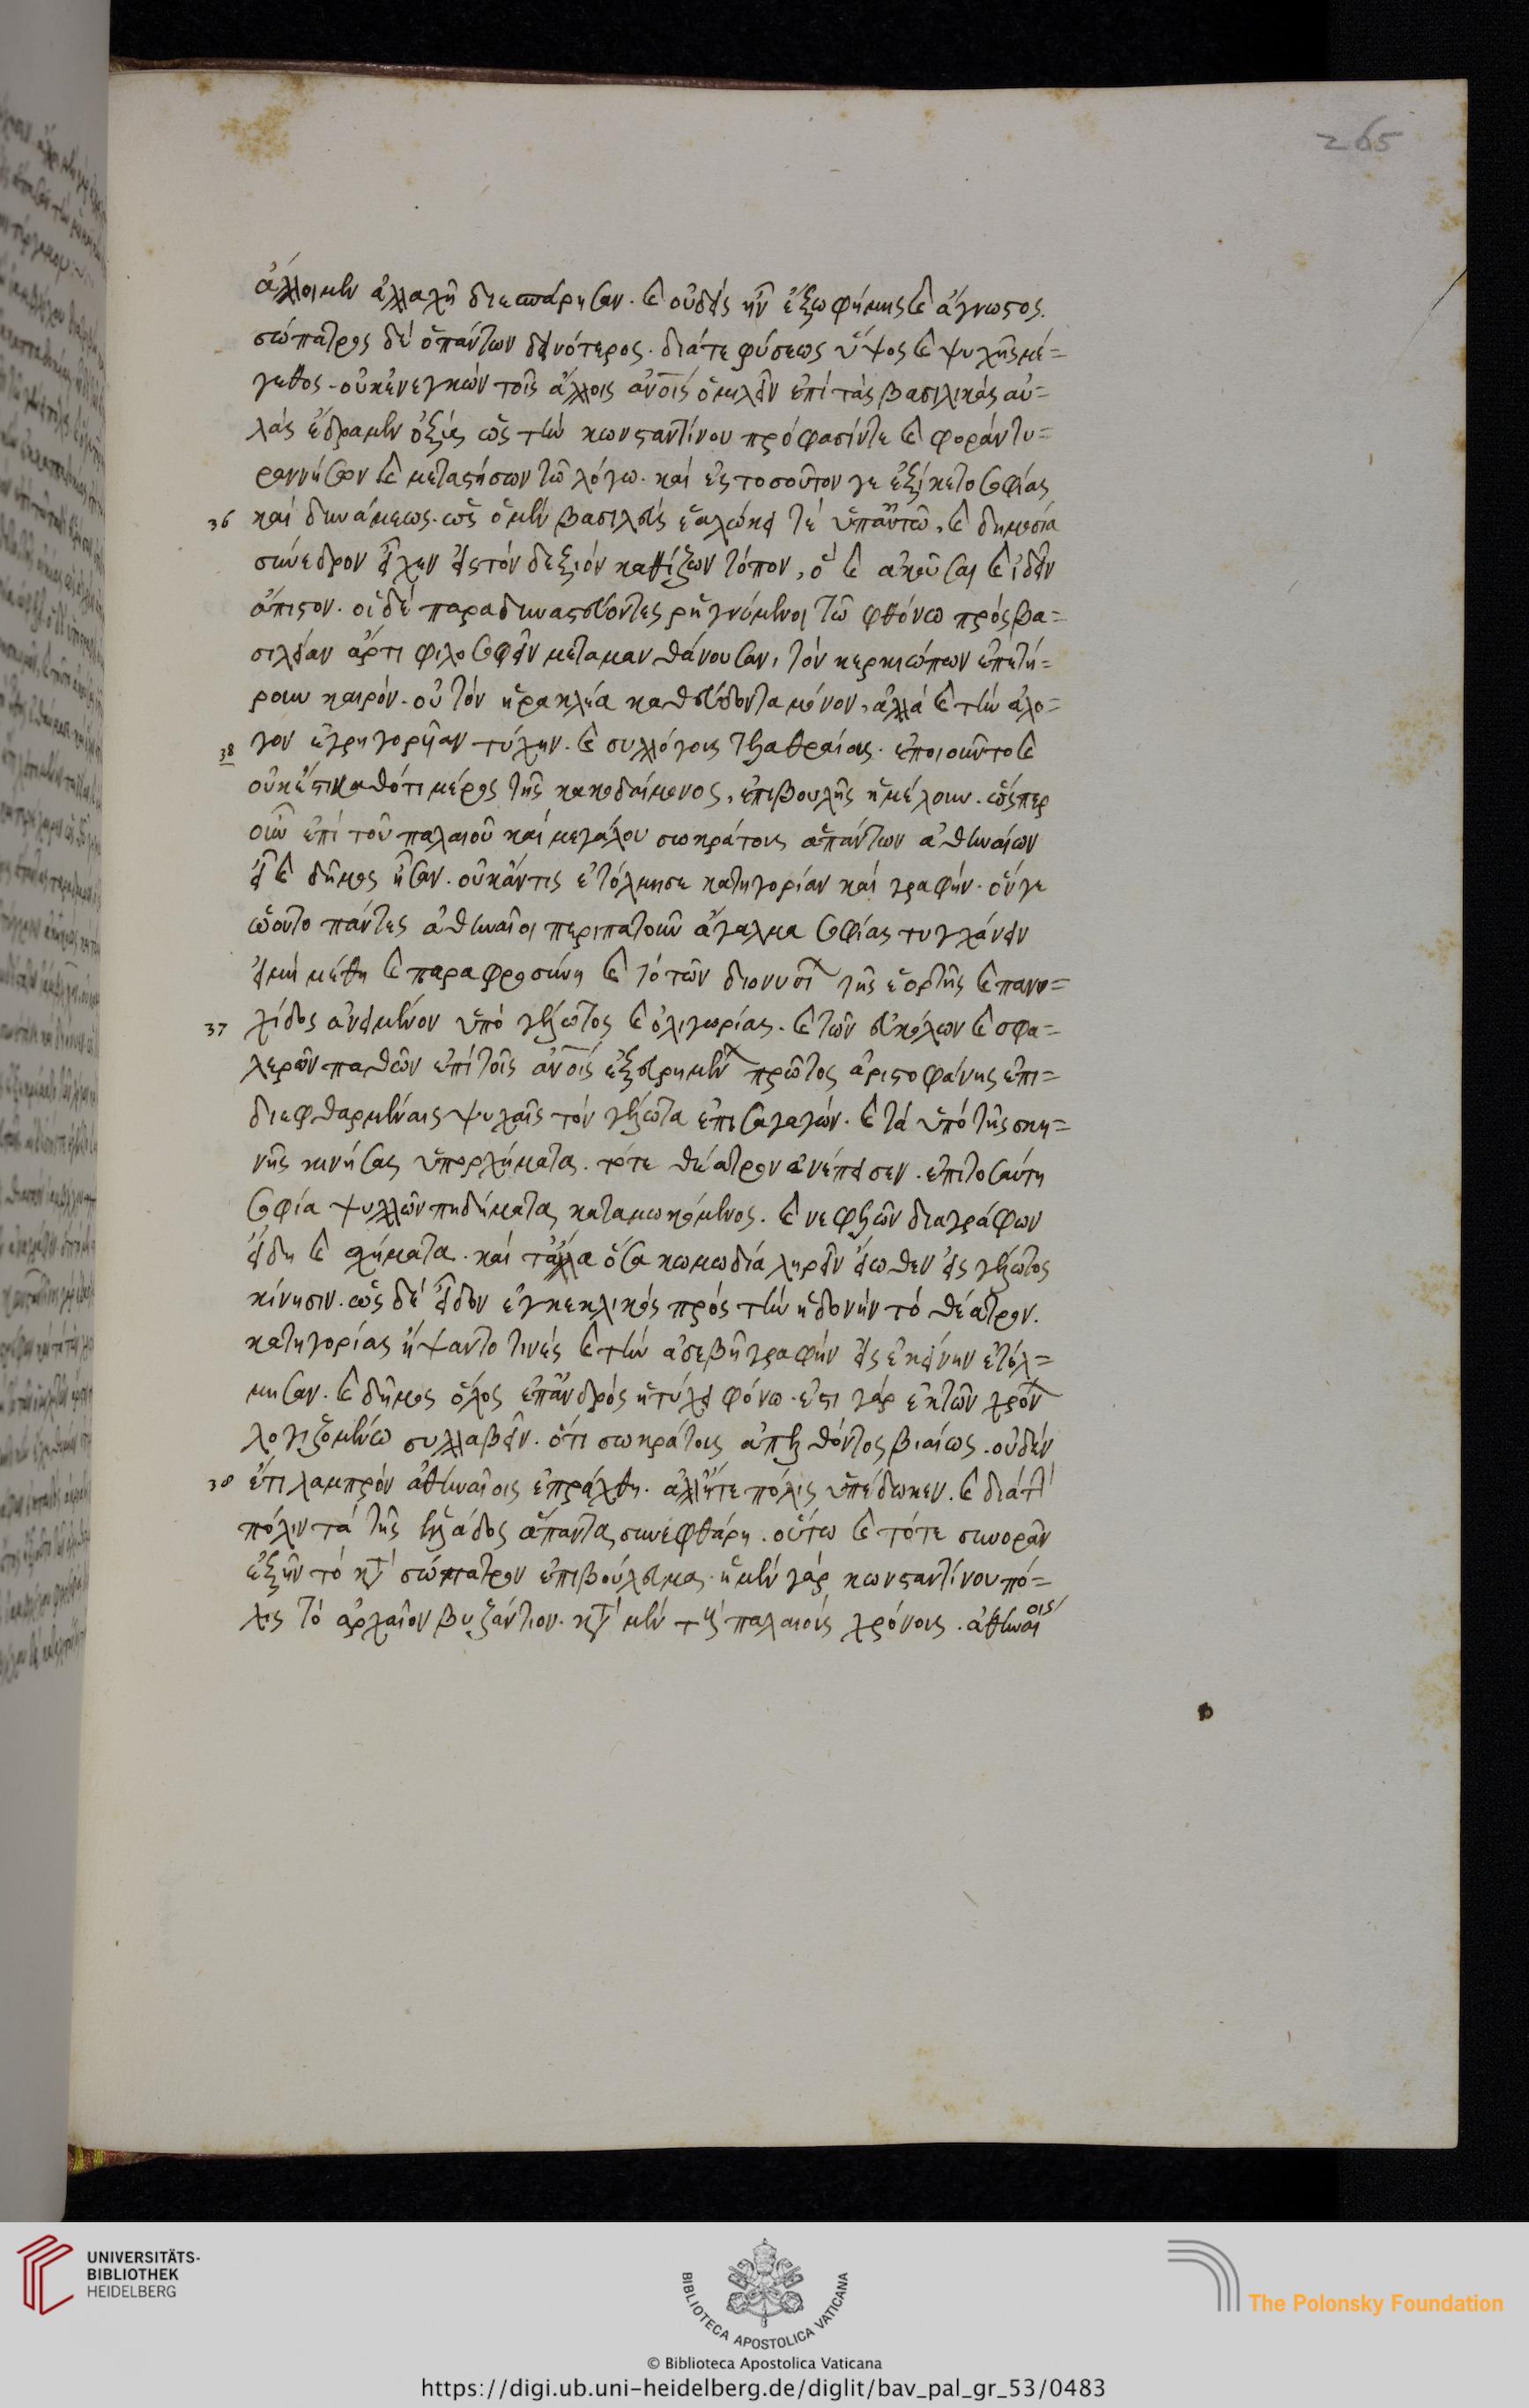 265
ἄλλοι μὲν ἀλλαχῆ διεσπάρησαν. καὶ οὐδεὶς ἦν ἔξω φήμης καὶ ἄγνωστος.
σώπατρος δὲ ὁ πάντων δεινότερος. διά τε φύσεως ὕψος καὶ ψυχῆς μέ=
γεθος. οὐκ ἐνεγκὼν τοῖς ἄλλοις ἀνοις ὁμιλεῖν ἐπὶ τὰς βασιλικὰς αὐ=
λὰς ἔδραμεν ὀξὺς ὡς τὴν κωνσταντίνου πρόφασίν τε καὶ φορὰν τυ=
ραννήσων καὶ μεταστήσων τῶ λόγω. καὶ ἐς τοσοῦτόν γε ἐξίκετο σοφίας
36 καὶ δυνάμεως. ὡς ὁ μὲν βασιλεὺς ἑαλώκει τε ὑπ' αὐτῶ, καὶ δημοσία
σύνεδρον εἶχεν εἰς τὸν δεξιὸν καθίζων τόπον, ὃ καὶ ἀκοῦσαι καὶ ἰδεῖν
ἄπιστον. οἱ δὲ παραδυναστεύοντες ῥηγνύμενοι τῶ φθόνω πρὸς βα=
σιλείαν ἄρτι φιλοσοφεῖν μεταμανθάνουσαν, τὸν κερκώπων ἐπετή=
ρουν καιρόν. οὐ τὸν ἡρακλέα καθεύδοντα μόνον, ἀλλὰ καὶ τὴν ἄλο=
38 γον ἐγρηγορυῖαν τύχην. καὶ συλλόγους λαθραίας ἐποιοῦντο καὶ
οὐκ ἔστι καθότι μέρος τῆς κακοδαίμονος, ἐπιβουλῆς ἠμέλουν. ὥσπερ
οὖν ἐπὶ τοῦ παλαιοῦ καὶ μεγάλου σωκράτους ἁπάντων ἀθηναίων
εἰ καὶ δῆμος ἦσαν. οὐκ ἄν τις ἐτόλμησε κατηγορίαν καὶ γραφήν. ὅν γε
ὤοντο πάντες ἀθηναῖοι περιπατοῦν ἄγαλμα σοφίας τυγχάνειν
εἰ μὴ μέθη καὶ παραφροσύνη καὶ τὸ τῶν διονυσί τῆς ἑορτῆς καὶ παννυ=
37 χίδος ἀνειμένον ὑπὸ γέλωτος καὶ ὀλιγωρίας. καὶ τῶν εὐκόλων καὶ σφα=
λερῶν παθῶν ἐπὶ τοῖς ἀνοις ἐξευρημέν πρῶτος ἀριστοφάνης ἐπι=
διεφθαρμέναις ψυχαῖς τὸν γέλωτα ἐπεισαγαγών. καὶ τὰ ὑπὸ τῆς σκη=
νῆς κινήσας ὑπορχήματα. τότε θέατρον ἀνέπεισεν. ἐπὶ τοσαύτη
σοφία ψυλλῶν πηδήματα καταμωκόμενος. καὶ νεφελῶν διαγράφων
εἴδη καὶ σχήματα. καὶ τἄλλα ὅσα κωμωδία ληρεῖν εἴωθεν εἰς γέλωτος
κίνησιν. ὡς δὲ εἶδον ἐγκεκλικὸς πρὸς τὴν ἡδονὴν τὸ θέατρον.
κατηγορίας ἥψαντό τινες καὶ τὴν ἀσεβῆ γραφὴν εἰς ἐκείνην ἐτόλ=
μησαν. καὶ δῆμος ὅλος ἐπ' ἀνδρὸς ητύχει φόνω. ἔστι γὰρ ἐκ τῶν χρόν
λογιζομένω συλλαβεῖν. ὅτι σωκράτους ἀπελθόντος βιαίως. οὐδὲν
38 ἔτι λαμπρὸν ἀθηναίοις ἐπράχθη. ἀλλ' ἥ τε πόλις ὑπέδωκεν. καὶ διὰ τὴν
πόλιν τὰ τῆς ἑλλάδος ἅπαντα συνεφθάρη. οὕτω καὶ τότε συνορᾶν
ἐξῆν τὸ κατὰ σώπατρον ἐπιβούλευμα. ἡ μὲν γὰρ κωνσταντίνου πό=
λις τὸ ἀρχαῖον βυζάντιον. κατὰ μὲν τοὺς παλαιοὺς χρόνους. ἀθηναίοις
UNIVERSITÄTS-
BIBLIOTHEK
HEIDELBERG
BIBLIOTECA APOSTOLICA VATICANA
The Polonsky Foundation
© Biblioteca Apostolica Vaticana
https://digi.ub.uni-heidelberg.de/diglit/bav_pal_gr_53/0483